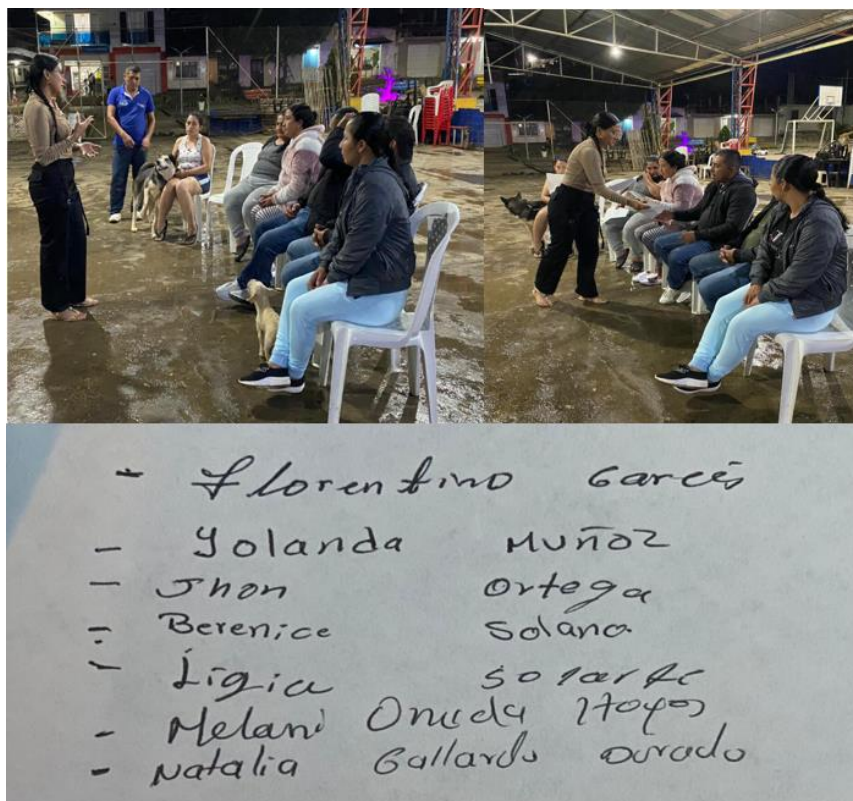 - Florentino Garcés
- Yolanda Muñoz
- Jhon Ortega
- Berenice Solano
- Ligia Solarte
- Melani Hoyos
- Natalia Gallardo Dorado